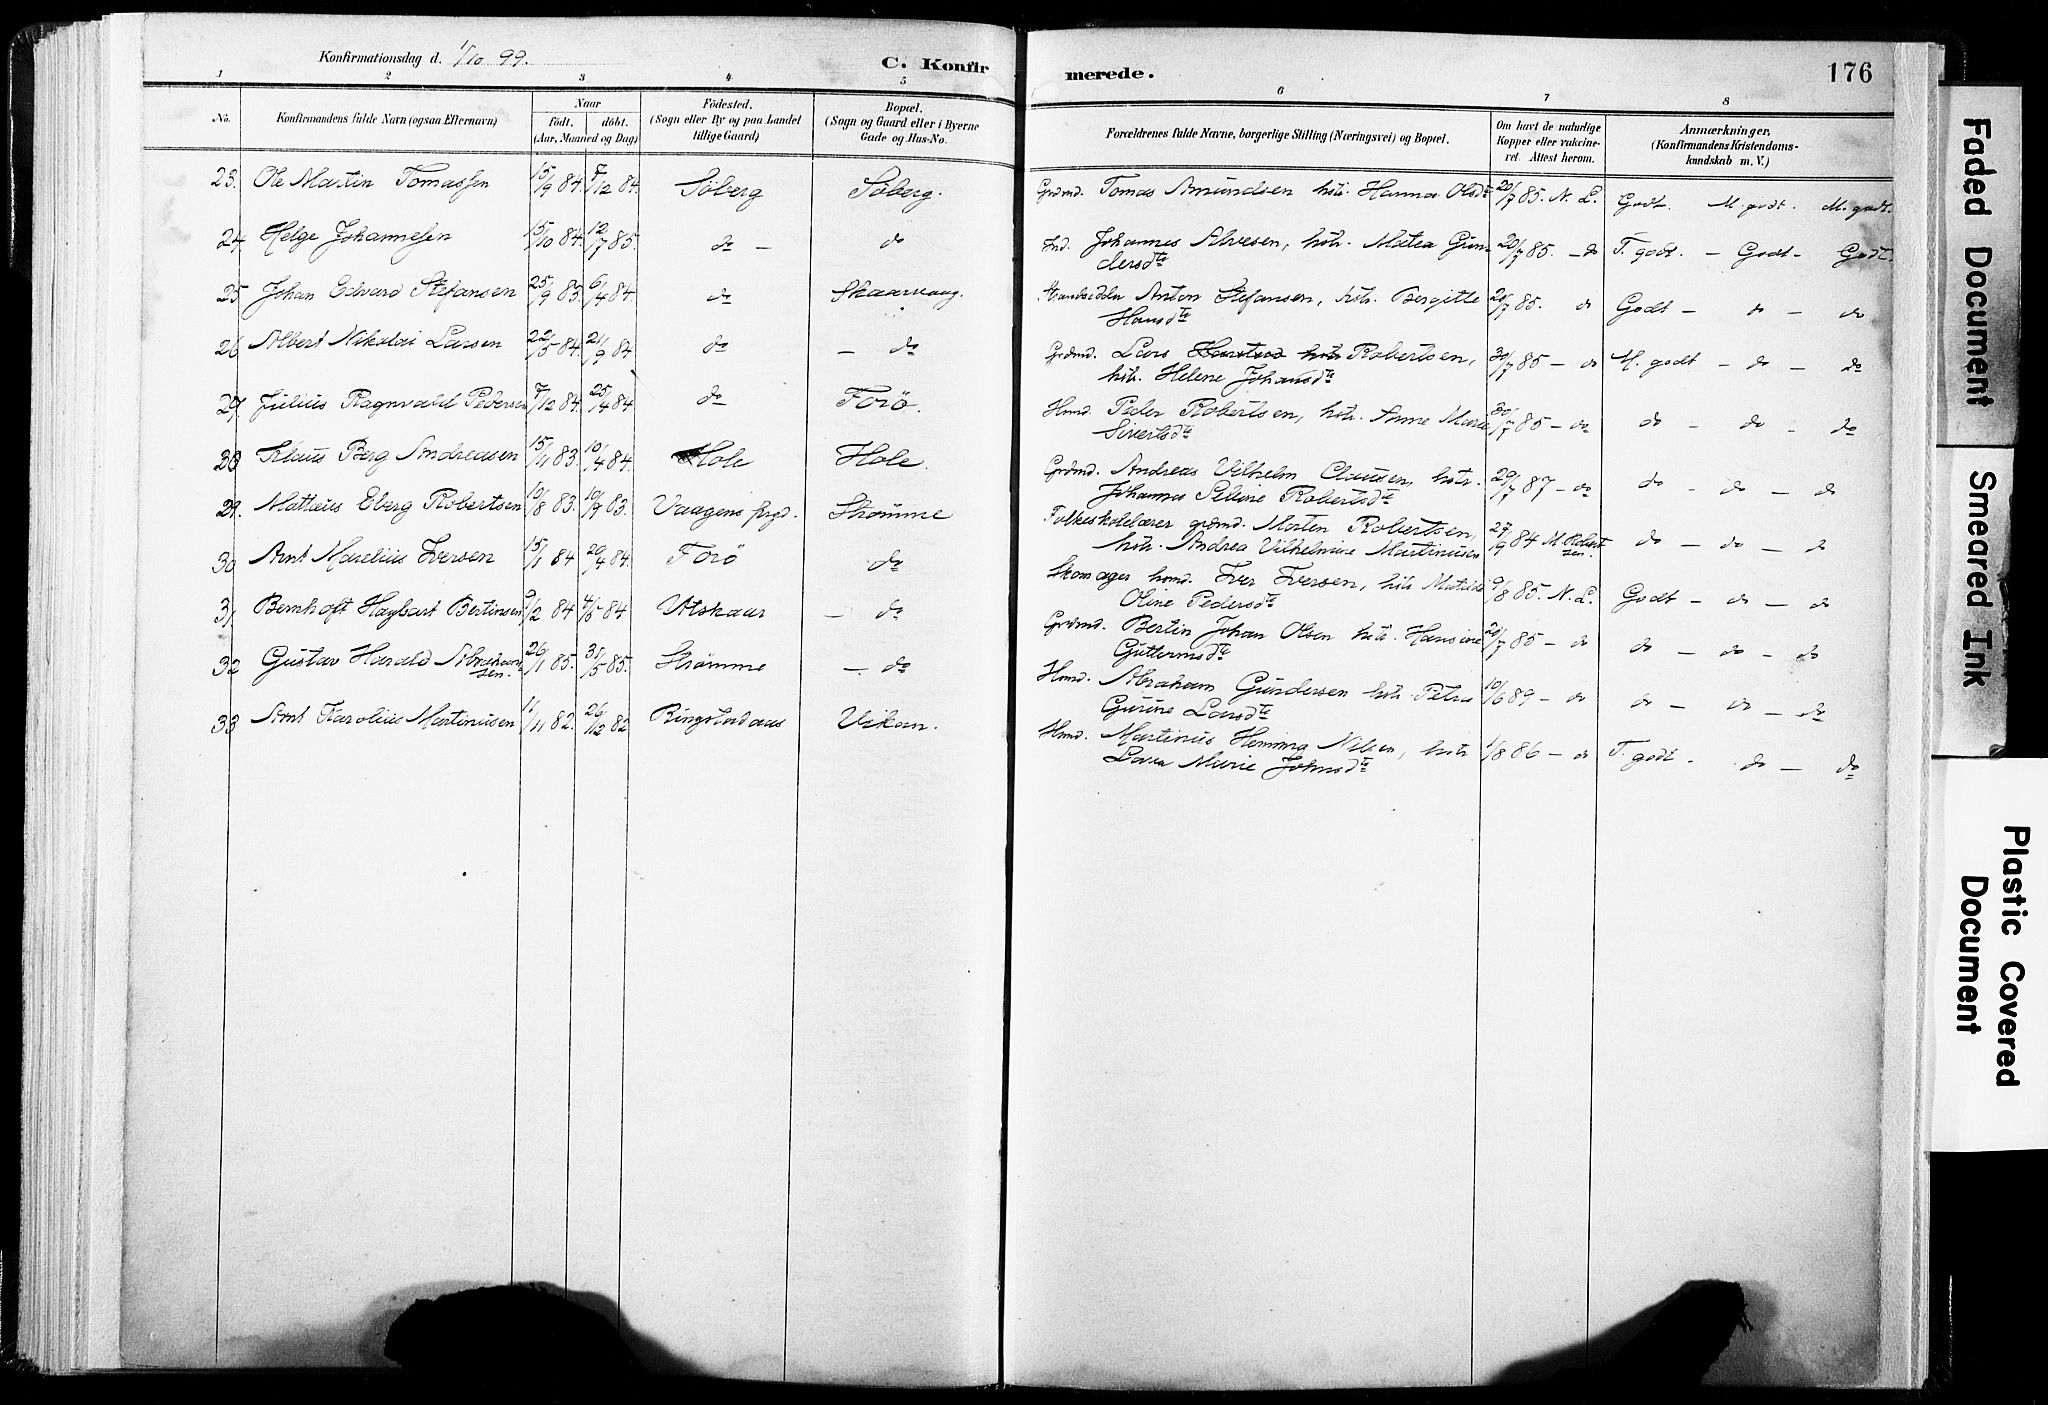 Konfirmationsdag d. 1/10 99.
C. Konfirmerede.
176
1 2 3 4 5 6 7 8
No.
Konfirmandens fulde Navn (ogsaa Efternavn)
Naar
født. døbt.
(Aar, Maaned og Dag)
Fødested.
(Sogn eller By og paa Landet
tillige Gaard)
Bopæl.
(Sogn og Gaard eller i Byerne
Gade og Hus-No.
Forældrenes fulde Navne, borgerlige Stilling (Næringsvei) og Bopæl.
Om havt de naturlige
Kopper eller vakcine-
ret. Attest herom.
Anmærkninger,
(Konfirmandens Kristendoms-
kundskab m. V.)
23. Ole Martin Tomassen 15/9 84. 7/12 84. Söberg Söberg. Grdmd. Tomas Amundsen hstr. Hanna Olsdtr 20/7 85. N. L. Godt. M. godt. M. godt.
24 Helge Johannesen 15/10 84. 12/7 85. do - do Ind. Johannes Alvesen, hstr. Matea Gun-
dersdtr 20/7 85. - do T. godt. - Godt - Godt.
25 Johan Edvard Stefansen 25/9 83. 6/4 84. do Skaarvaag. Strandsidder Anton Stefansen, hstr. Bergitte
Hansdtr 20/7 85. do Godt - do - do
26 Albert Nikolai Larsen 22/5 84. 21/9 84 do - do Grdmd. Lars Robertsen,
hstr. Helene Johansdtr 30/7 85 - do M. godt - do - do
27. Julius Ragnvald Pedersen 7/12 84. 25/4 84 do Forö. Hmd. Peder Robertsen, hstr. Anne Marie
Sivertsdtr 30/7 85 - do do - do - do
28 Klaus Berg Andreasen 15/11 83. 10/4 84. Hole Hole. Grdmd. Andreas Vilhelm Clausen, hstr.
Johanna Petrine Robertsdtr 29/7 87 - do do - do - do
29. Mattæus Eberg Robertsen 10/8 83. 10/9 83. Vaagens prgd. Strömme Folkeskolelærer grdmd. Morten Robertsen,
hstr. Andrea Vilhelmine Martinusen 27/9 84 M. Robert-
sen. do - do - do
30 Arnt Marelius Iversen 15/1 84 20/4 84. Forö do Skomager hmd. Iver Iversen, hstr. Matilde
Oline Pedersdtr 9/8 85. N. L. Godt - do - do
31 Bernhoft Hagbart Bertinsen 9/2 84 4/5 84 Utskaar - do Grdmd. Bertin Johan Olsen hstr. Hansine
Guttormsdtr 20/7 85 - do do - do - do
32 Gustav Harald Abraham-
sen. 26/1 85. 31/5 85. Strömme - do Hmd. Abraham Gundersen hstr. Petra
Gurine Larsdtr 10/6 89 - do do - do - do
33 Arnt Karolius Martinusen 11/11 82. 26/12 82 Ringstadaas Vikan. Hmd. Martinus Heming Nilsen, hstr
Lava Marie Johnsdtr 1/8 86 - do T. godt. do - do
Faded Document Smeared Ink
Plastic Covered
Document